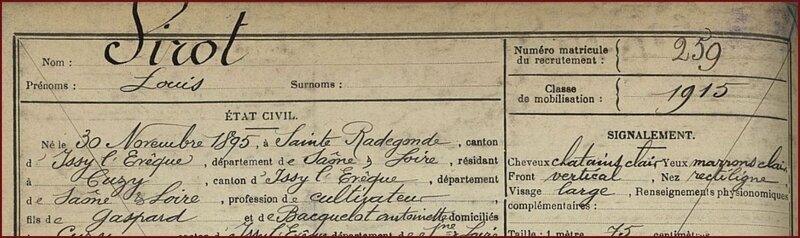 Nom : Pirot
Prénoms : Louis Surnoms :
ÉTAT CIVIL.
Né le 30 Novembre 1895, à Sainte Radegonde, canton
d'Issy l'Evêque, département de Saône & Loire, résidant
à Cuzy, canton d'Issy l'Evêque, département
de Saône & Loire, profession de cultivateur
fils de Gaspard et de Bacquelot antoinette domiciliés
Numéro matricule
du recrutement : 259
Classe
de mobilisation : 1915
SIGNALEMENT.
Cheveux chatains clair Yeux marrons clair
Front vertical Nez rectiligne
Visage large, Renseignements physionomiques
complémentaires :
Taille : 1 mètre 75 centim